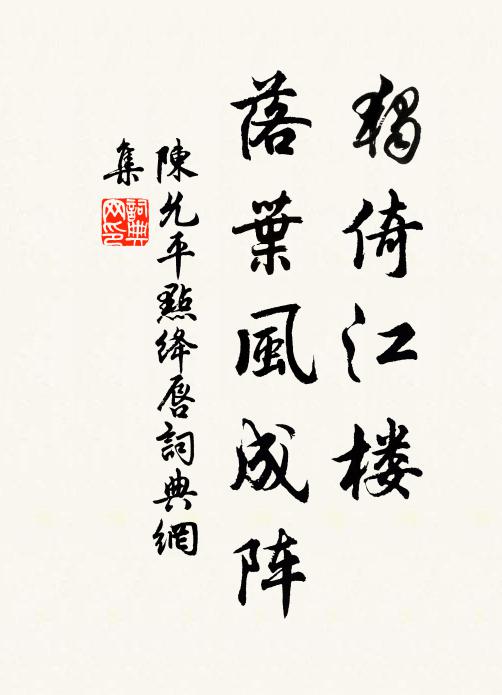 獨倚江楼
落葉風成阵
陳允平點绛唇詞典網
集
詞典网印